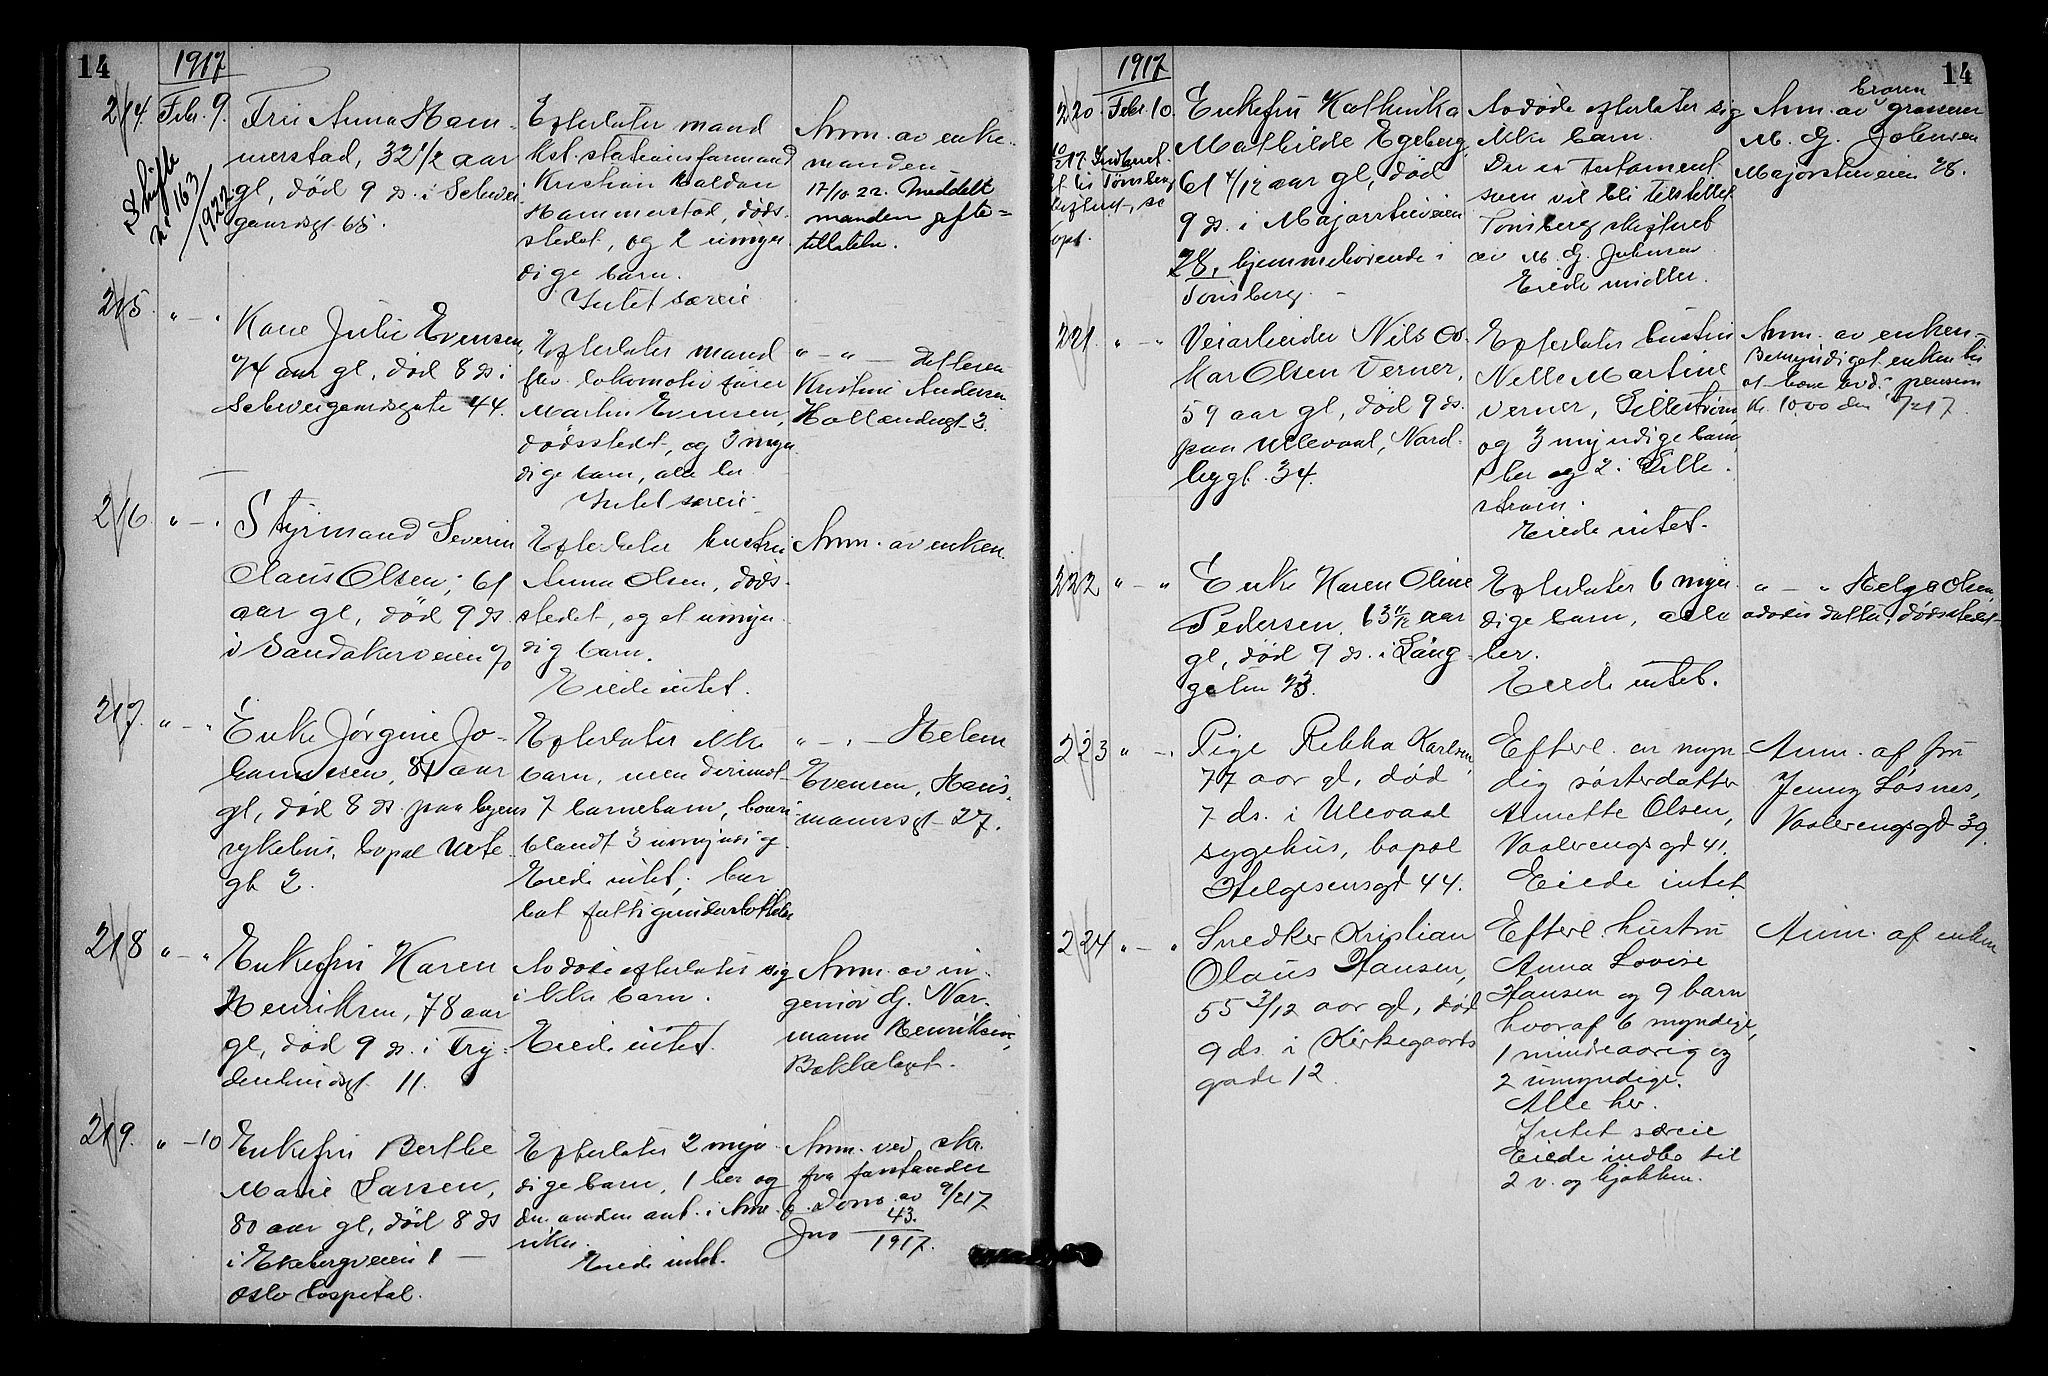 14
1917
214. Febr. 9.
Skifte
no 163/1922.
Fru Anna Ham-
merstad, 32 1/2 aar
gl, död 9 ds. i Schwei-
gaardsgt. 65.
Efterlater mand
kst. stationsformand
Kristian Haldan
Hammerstad, döds-
stedet, og 2 umyn-
dige barn.
Intet særeie
Anm. av enke-
manden
17/10.22. Meddelt
manden gifte-
tilladelse.
215 " - "
Kare Julie Evensen,
74 aar gl, död 8 ds i
Schweigaardsgate 44.
Efterlater mand
fhv. lokomotivförer
Martin Evensen,
dödsstedet, og 3 myn-
dige barn, alle her
Intet særeie
" - " - datteren
Kristine Andersen
Hollendergt. 2.
216. " - "
Styrmand Severin
Claus Olsen, 61
aar gl, död 9 ds
i Sandakerveien
Efterlater hustru
Anna Olsen, döds-
stedet, og et umyn-
dig barn.
Eiede intet.
Anm. av enken.
217. " - "
Enke Jørgine Jo-
hannesen, 81 aar
gl, död 8 ds. paa byens
sykehus, bopæl Urte-
gt. 2.
Efterlater ikke
barn, men derimot
7 barnebarn, hvori-
blandt 3 umyndige
Eiede intet, har
hat fattigunderstöttelse
" - " - Helene
Evensen, Haus-
mannsgt. 27.
218 " - "
Enkefru Karen
Henriksen, 78 aar
gl, död 9 ds. i Try-
denlundsgt. 11.
Avdöde efterlater sig
ikke barn.
Eiede intet.
Anm. av in-
geniör G. Nor-
mann Henriksen,
Bækkelaget.
219. " - 10
Enkefru Berthe
Marie Larsen,
80 aar gl, död 8 ds
i Ekebergveien 1 -
Oslo hospital.
Efterlater 2 myn-
dige barn, 1 her og
den anden ant. i Ame-
rika.
Eiede intet.
Anm. ved skr.
fra forstander
av 9/2 17
Jno 43./1917.
14
1917
220. Febr. 10
Enkefru Kathinka
Mathilde Egeberg,
61 4/12 aar gl, död
9 ds. i Majorstuveien
28, hjemmehörende i
Tönsberg. -
Avdöde efterlater sig
ikke barn.
Der er testament
som vil bli tilstillet
Tönsberg skifteret
av M. G. Johnsen
Eiede midler.
Anm. av broren grosserer
M. G. Johnsen
Majorstuveien 28.
221. " - "
Veiarbeider Nils Os-
kar Olsen Verner,
59 aar gl, död 9 ds.
paa Ullevaal, Nord-
bygt. 34.
Efterlater hustru
Nelle Martine
Verner, Lillestrøm,
og 3 myndige barn,
1 her og 2 i Lille-
strøm.
Eiede intet.
Anm. av enken -
Bemyndiget enken til
at hæve avd.s pension
Kr. 10,00 den 9/2 17.
222 " - "
Enke Karen Oline
Pedersen, 63 11/12 aar
gl, död 9 ds. i Lang-
gaten 23.
Efterlater 6 myn-
dige barn, alle
her.
Eiede intet.
" - " Helga Olsen,
avdödes datter, dödsstedet -
223 " - "
Pige Rikka Karlsen,
77 aar gl, död
7 ds. i Ulevaal
sygehus, bopæl
Helgesensgd 44.
Efterl. en myn-
dig sösterdatter
Annette Olsen,
Vaalerengsgd 41.
Eiede intet
Anm. af fru
Jenny Løsnes,
Vaalerengsgd 39.
224 " - "
Snedker Kristian
Olaus Hansen,
55 3/12 aar gl, död
9 ds. i Kirkegaards-
gade 12.
Efterl. hustru
Anna Lovise
Hansen og 9 barn
hvoraf 6 myndige,
1 mindreaarig og
2 umyndige.
Alle her.
Intet særeie
Eiede indbo til
2 v. og kjökken.
Anm. af enken